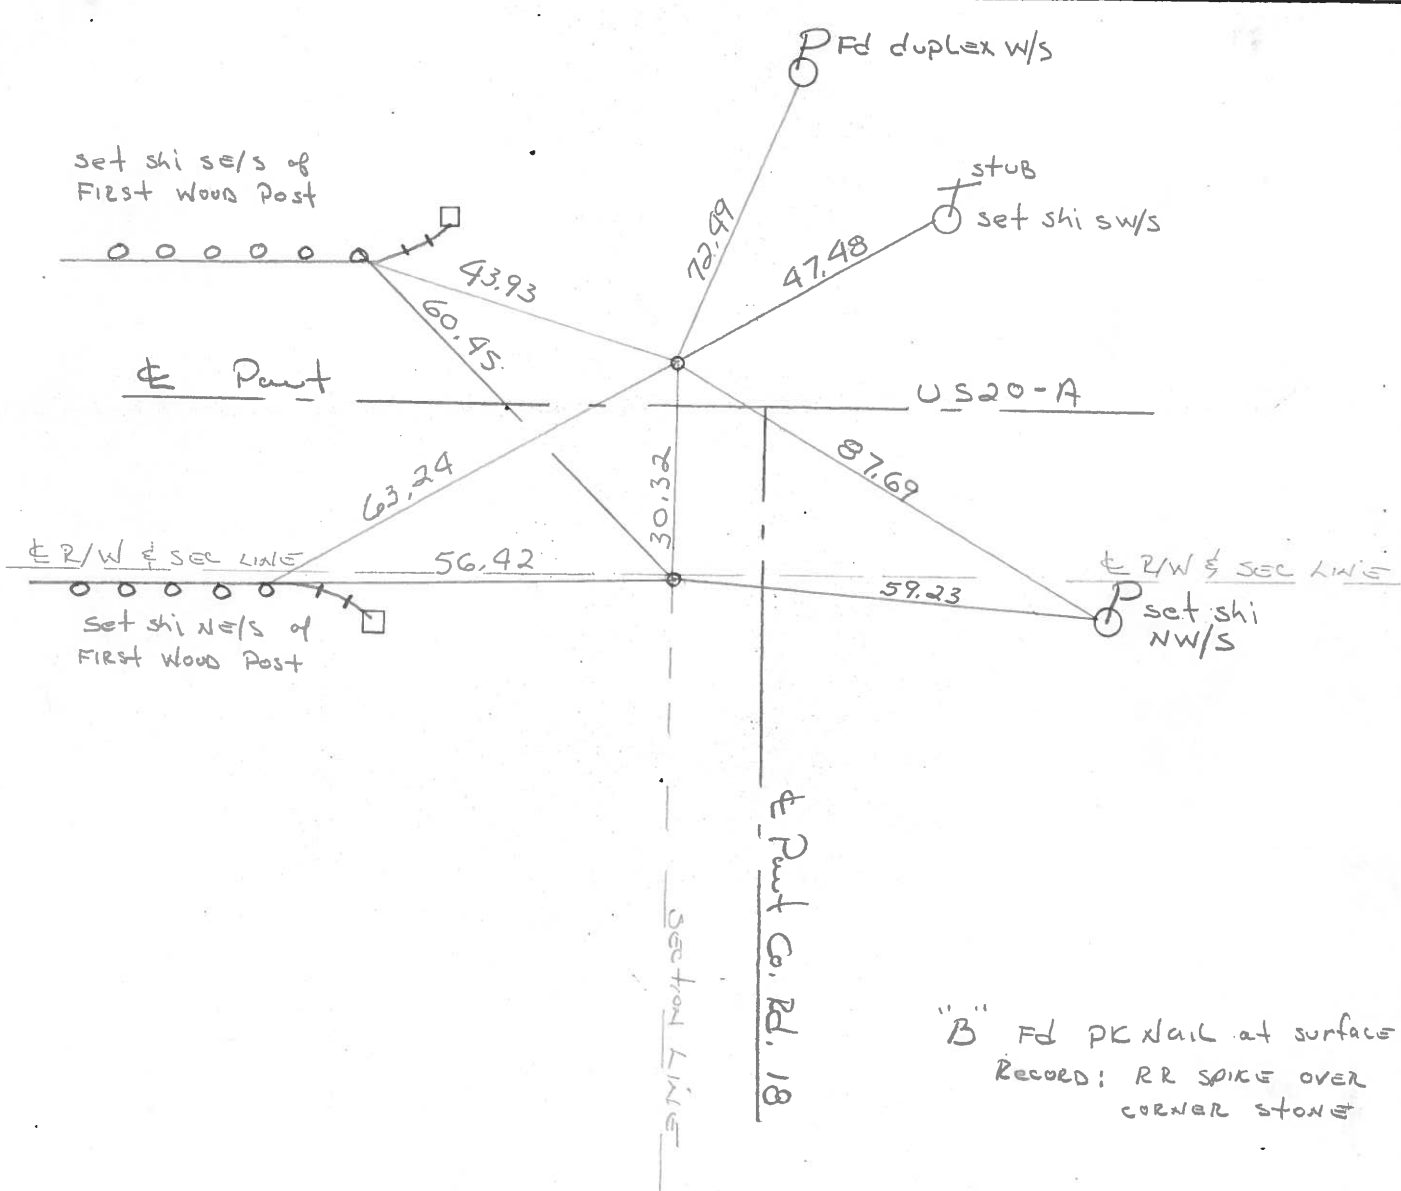 P Fd duplex w/s
set shi SE/S of
First Wood Post
stub
set shi SW/S
72.49
47.48
43.93
60.45
℄ Pavt
US20-A
63.24
30.32
87.69
℄ R/W & SEC LINE
56.42
59.23
℄ R/W & SEC LINE
set shi NE/S of
First Wood Post
P set shi
NW/S
℄ Pavt Co. Rd. 18
Section Line
"B" Fd PK Nail at surface
Record: RR Spike over
corner stone